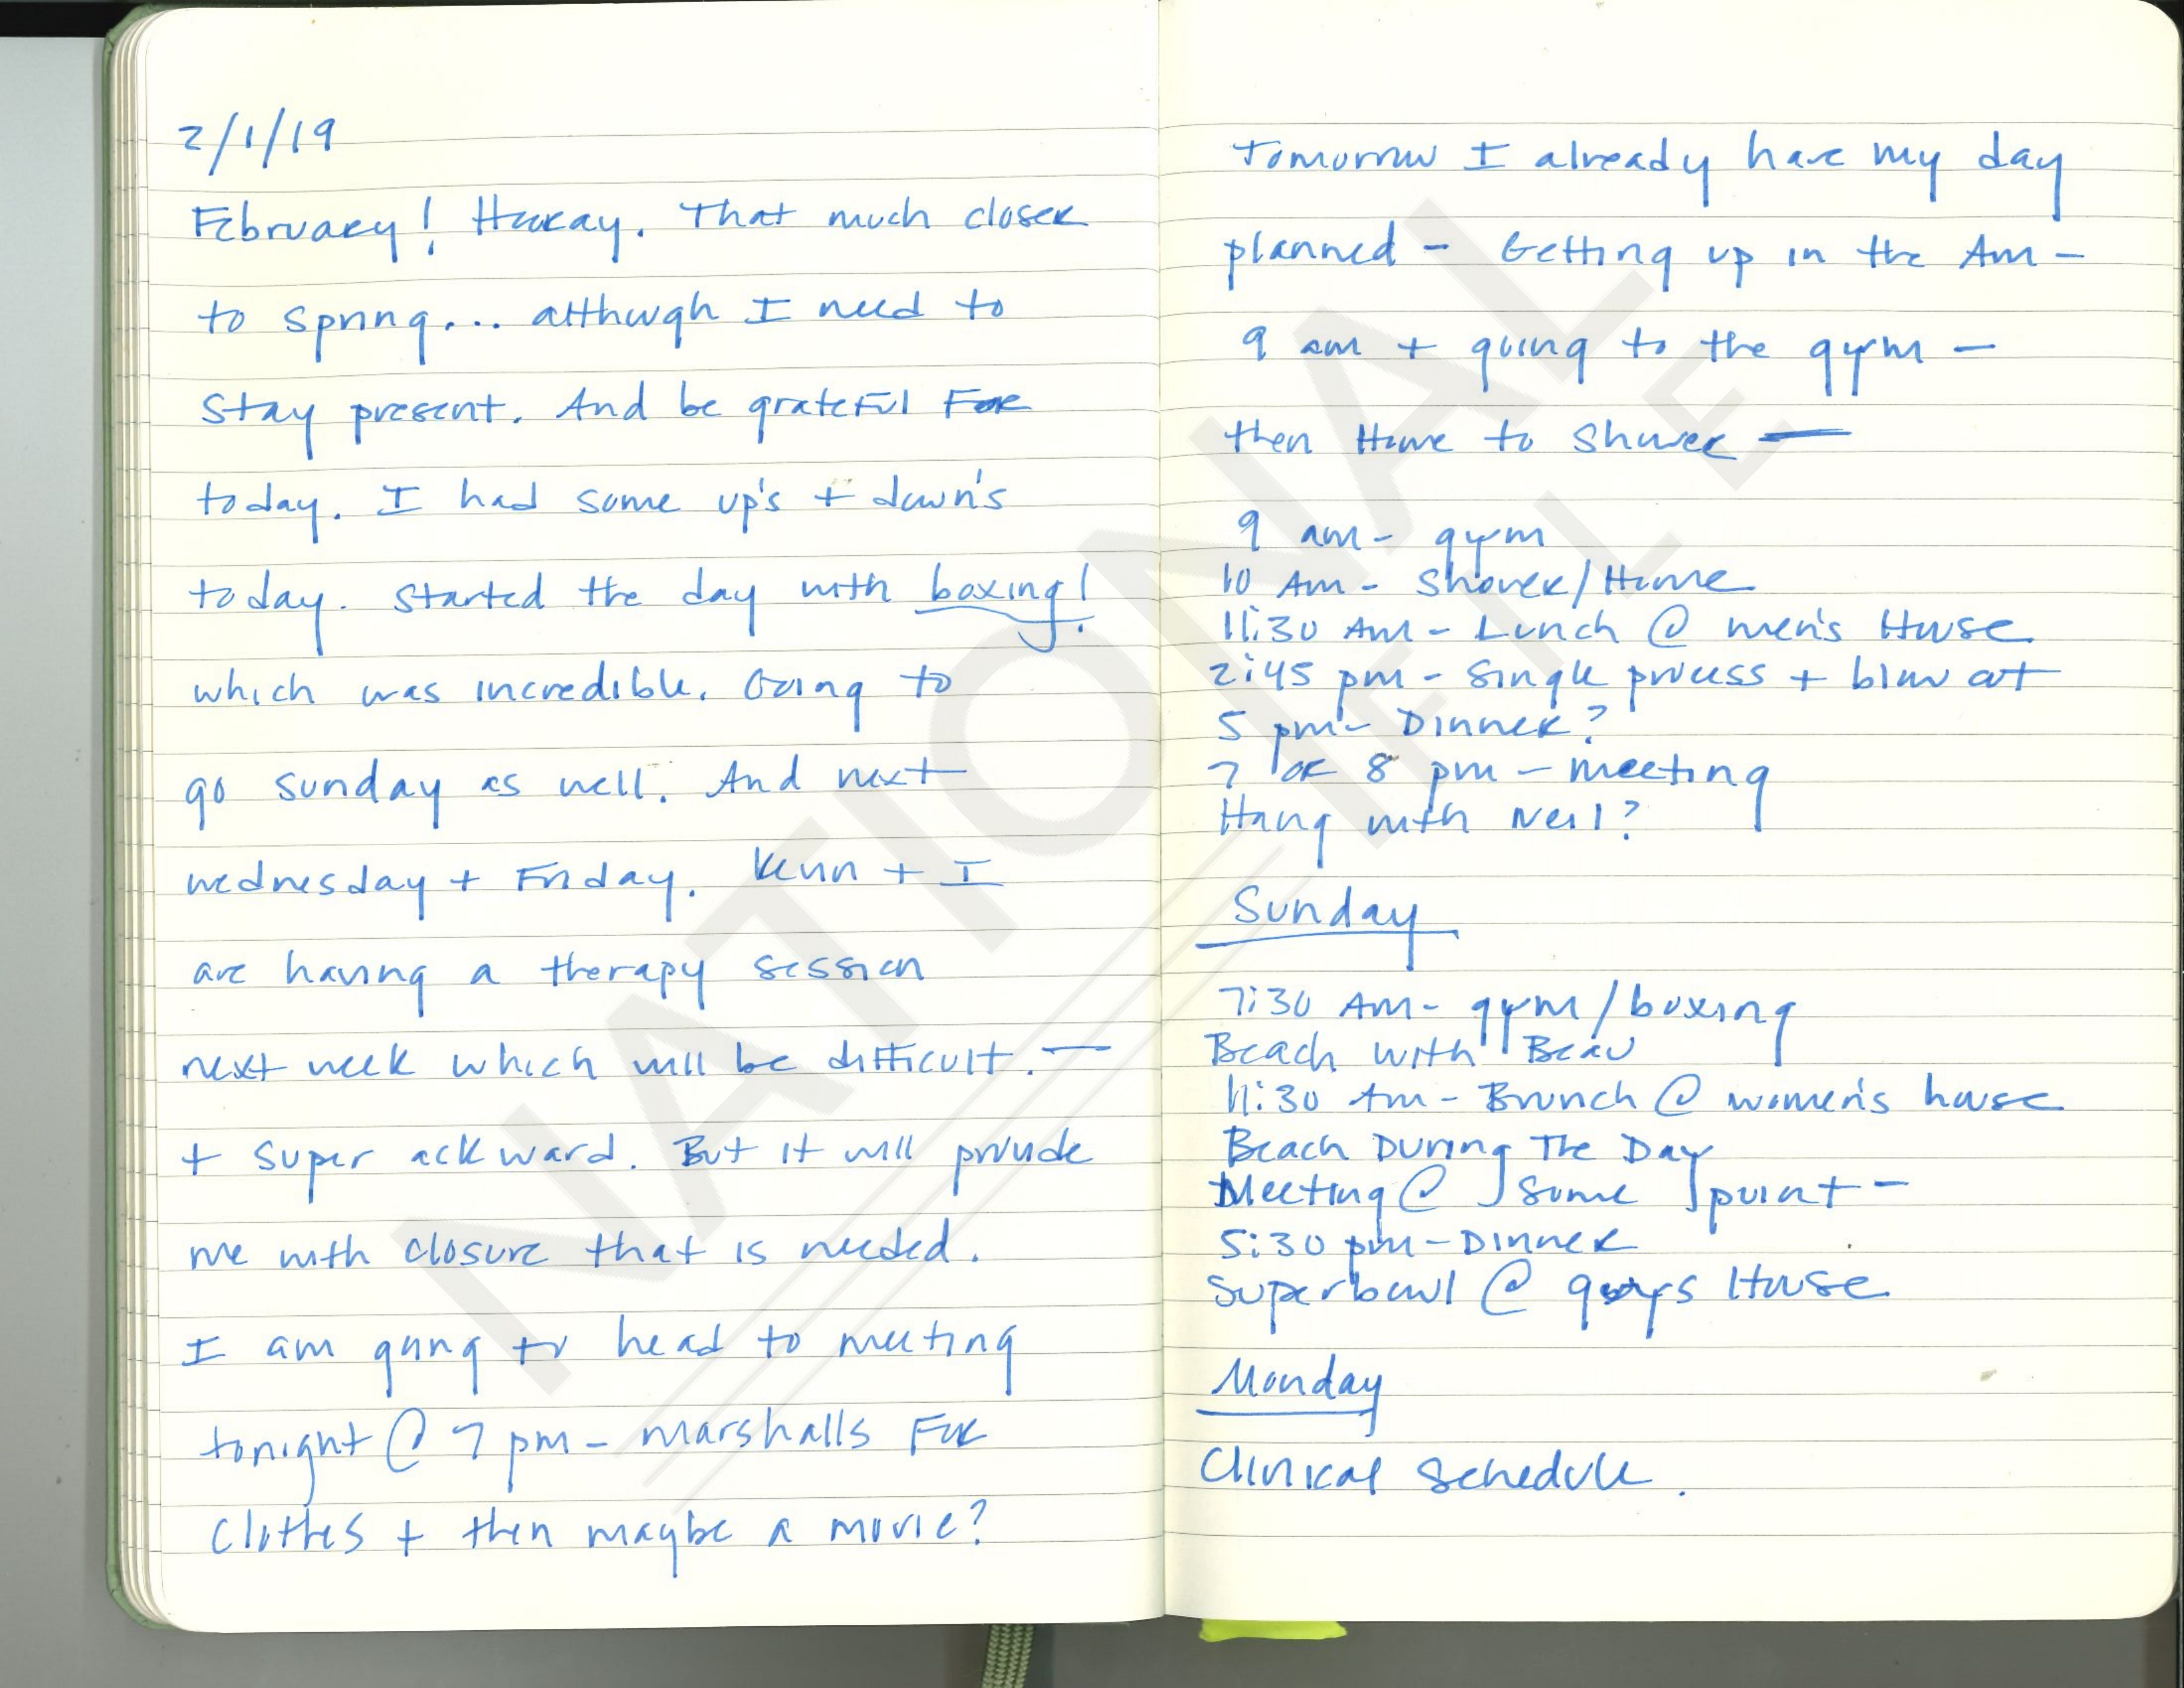 2/1/19
February! Hooray. That much closer
to spring... although I need to
stay present. And be grateful For
today. I had some up's + down's
today. Started the day with boxing!
which was incredible. Going to
go sunday as well. And next
wednesday + Friday. Kevin + I
are having a therapy session
next week which will be difficult. —
+ super ackward. But it will provide
me with closure that is needed.
I am going to head to meeting
tonight @ 7 pm - marshalls For
clothes + then maybe a movie?
Tomorrow I already have my day
planned - Getting up in the Am -
9 am + going to the gym -
then Home to Shower —
9 am - gym
10 Am - Shower/Home
11:30 Am - Lunch @ men's House
2:45 pm - Single process + blow out
5 pm - Dinner?
7 or 8 pm - meeting
Hang with Neil?
Sunday
7:30 Am - gym/boxing
Beach with Beau
11:30 Am - Brunch @ women's house
Beach During The Day
Meeting @ some point -
5:30 pm - Dinner
Superbowl @ guys House
Monday
Clinical Schedule.
NATIONAL
FILE